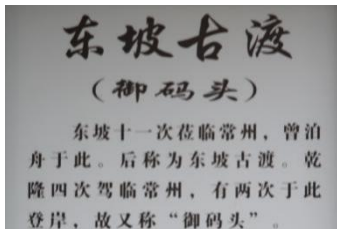 东坡古渡
（御码头）
东坡十一次莅临常州，曾泊
舟于此。后称为东坡古渡。乾
隆四次驾临常州，有两次于此
登岸，故又称“御码头”。